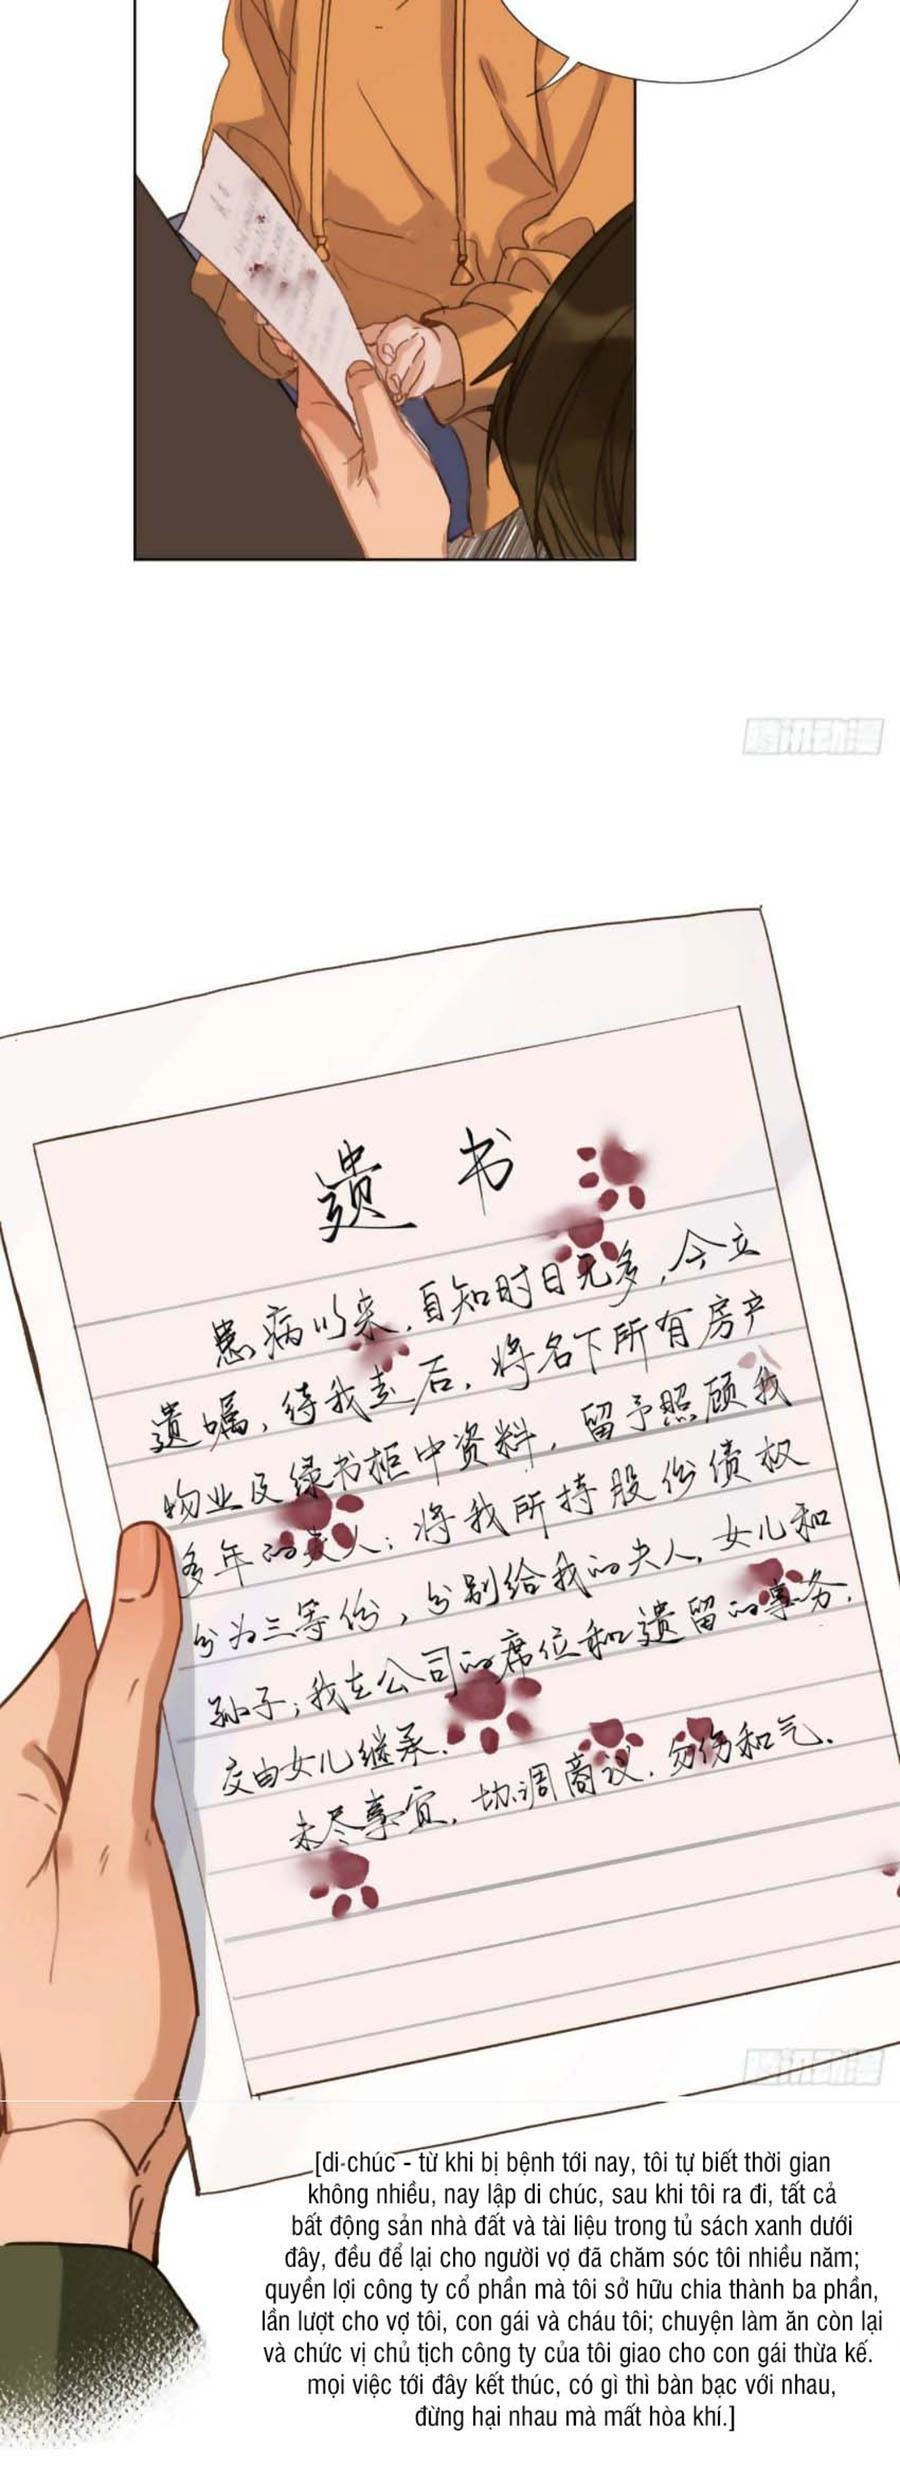 腾讯动漫
遗书
患病以来，自知时日无多，今立
遗嘱，待我走后，将名下所有房产
物业及绿书柜中资料，留予照顾我
多年的夫人；将我所持股份债权
分为三等份，分别给我的夫人，女儿和
孙子；我在公司的席位和遗留的事务，
交由女儿继承．
未尽事宜，协调商议，勿伤和气．
腾讯动漫
[di-chúc - từ khi bị bệnh tới nay, tôi tự biết thời gian
không nhiều, nay lập di chúc, sau khi tôi ra đi, tất cả
bất động sản nhà đất và tài liệu trong tủ sách xanh dưới
đây, đều để lại cho người vợ đã chăm sóc tôi nhiều năm;
quyền lợi công ty cổ phần mà tôi sở hữu chia thành ba phần,
lần lượt cho vợ tôi, con gái và cháu tôi; chuyện làm ăn còn lại
và chức vị chủ tịch công ty của tôi giao cho con gái thừa kế.
mọi việc tới đây kết thúc, có gì thì bàn bạc với nhau,
đừng hại nhau mà mất hòa khí.]